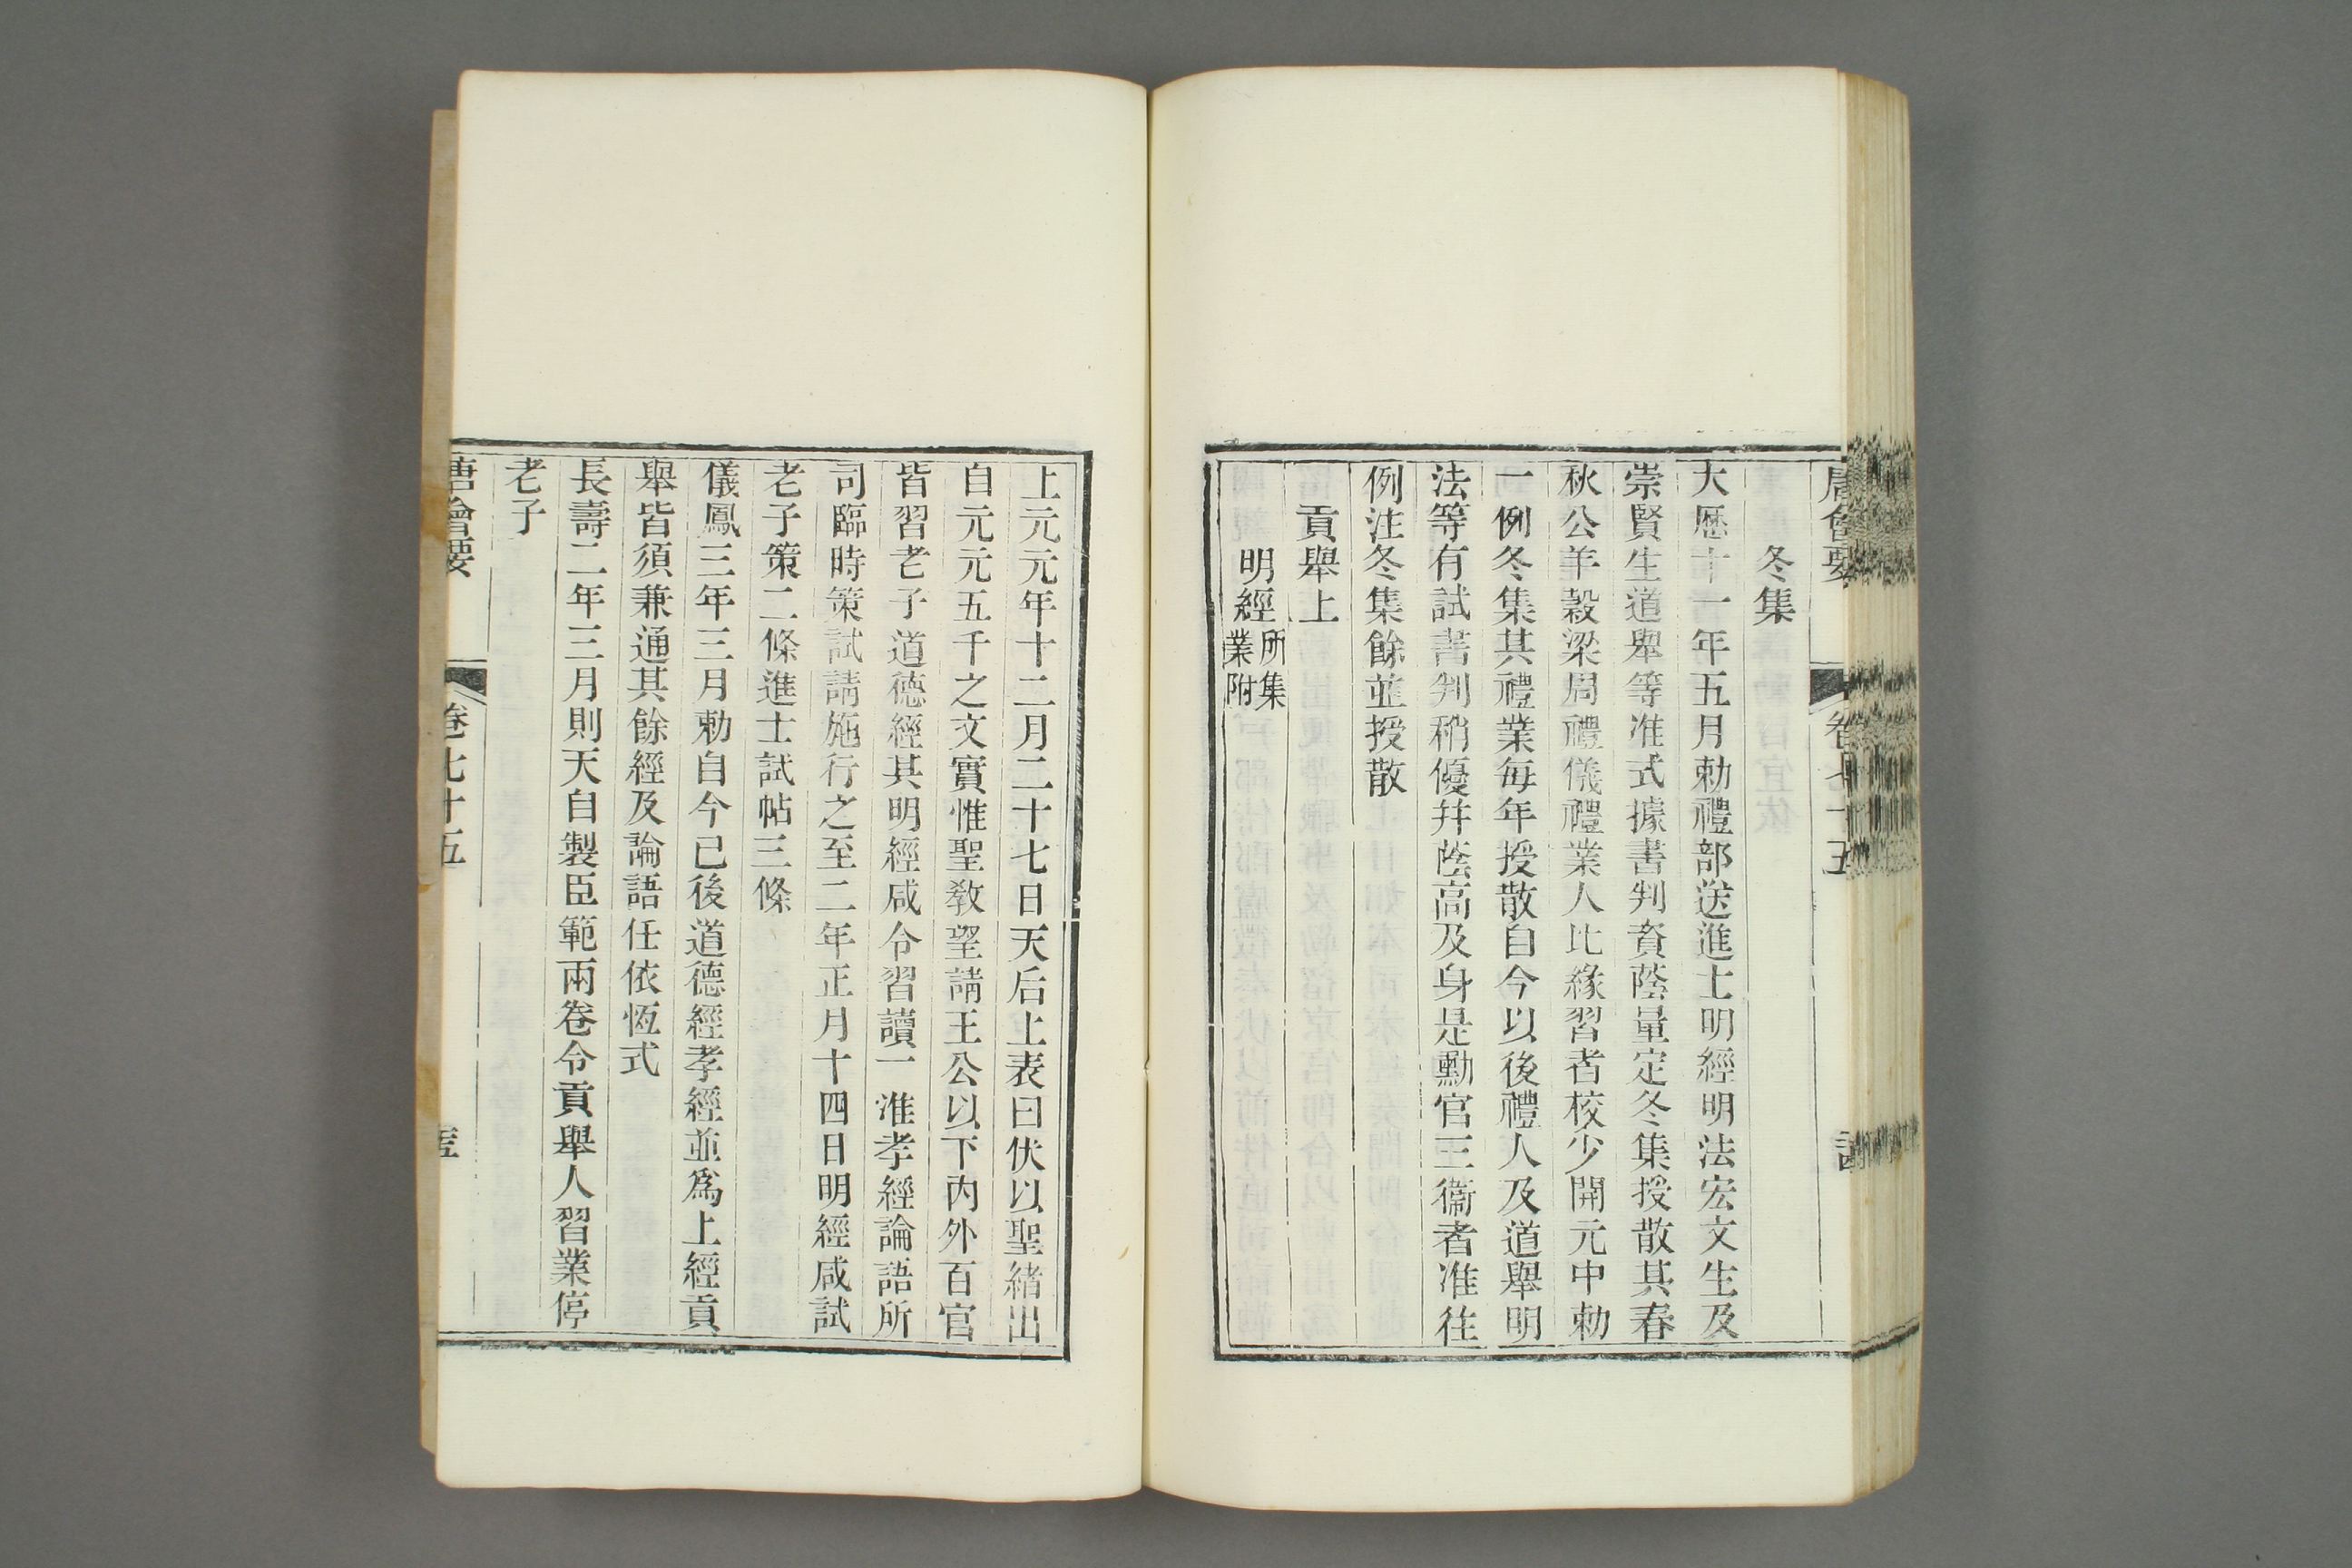 唐會要 卷七十五
冬集
大歷十一年五月勅禮部送進士明經明法宏文生及
崇賢生道舉等准式據書判資蔭量定冬集授散其春
秋公羊穀梁周禮儀禮業人比緣習者校少開元中勅
一例冬集其禮業每年授散自今以後禮人及道舉明
法等有試書判稍優并蔭高及身是勳官三衞者准往
例注冬集餘並授散
貢舉上
明經所集業附
上元元年十二月二十七日天后上表曰伏以聖緒出
自元元五千之文實惟聖敎望請王公以下內外百官
皆習老子道德經其明經咸令習讀一准孝經論語所
司臨時策試請施行之至二年正月十四日明經咸試
老子策二條進士試帖三條
儀鳳三年三月勅自今已後道德經孝經並爲上經貢
舉皆須兼通其餘經及論語任依恆式
長壽二年三月則天自製臣範兩卷令貢舉人習業停
老子
唐會要 卷七十五